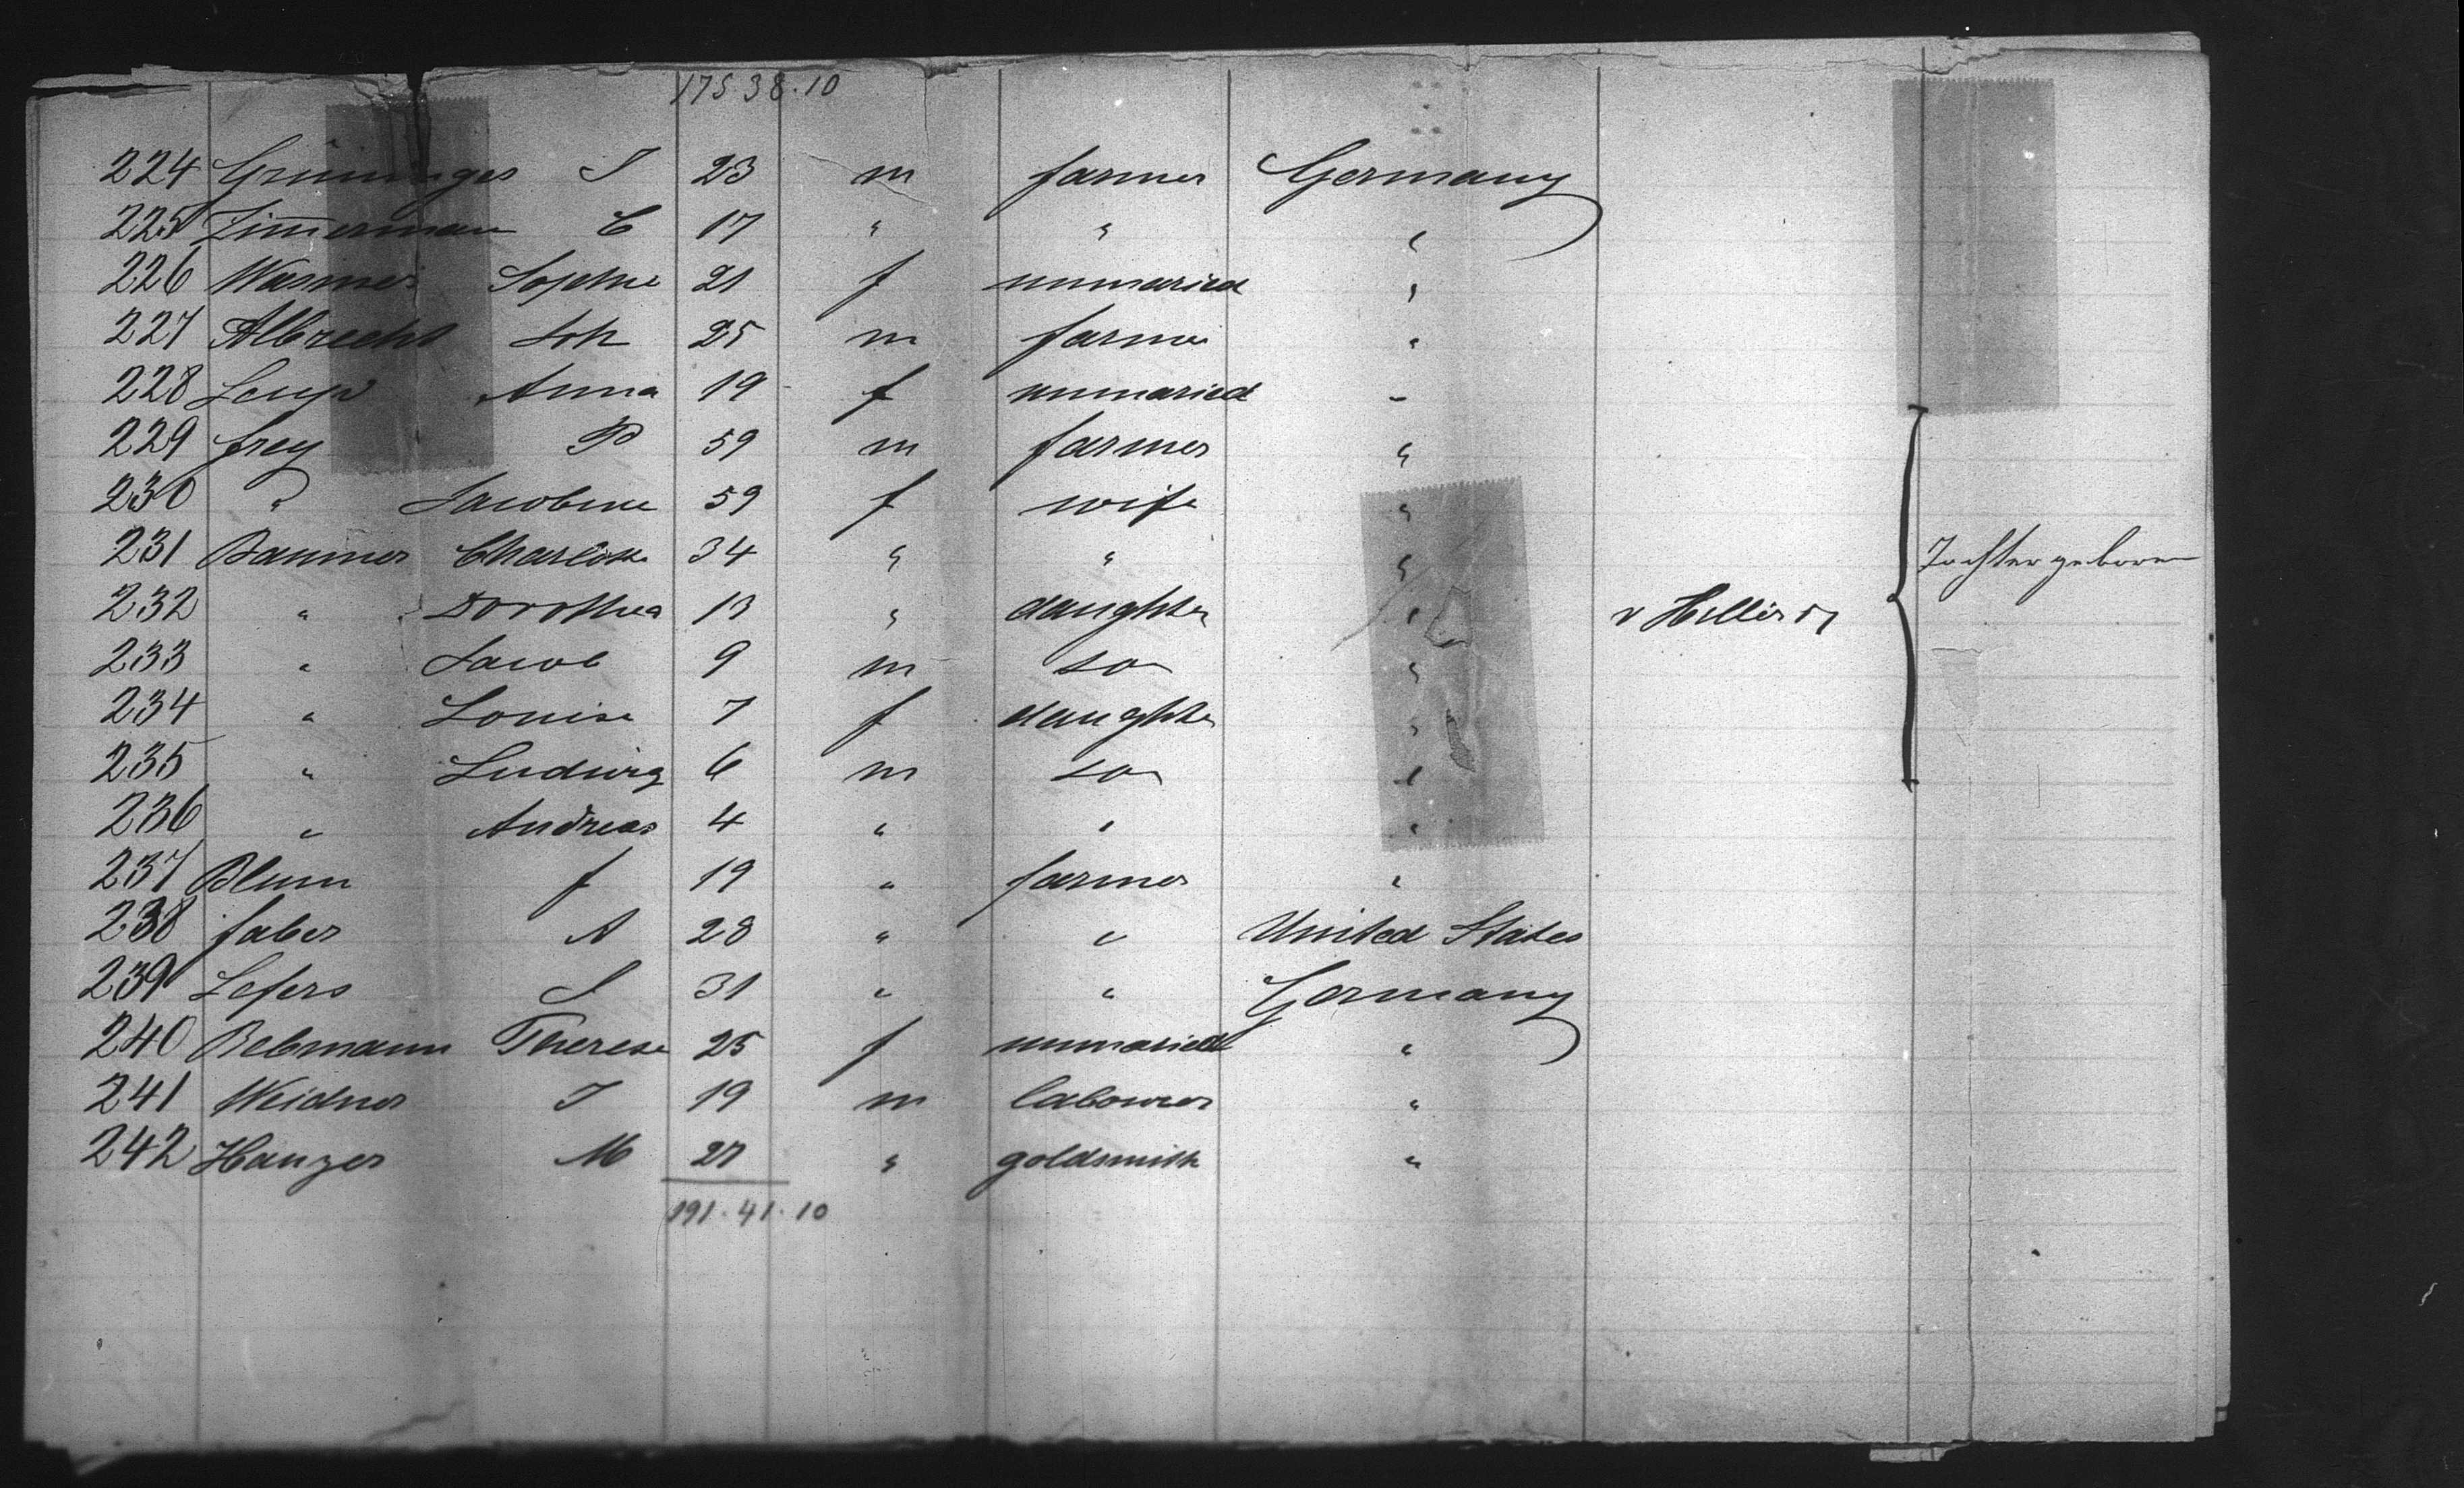 175 38 · 10
224 Grüninger J 23 m farmer Germany
225 Zimmerman C 17 " " "
226 Wasmer Sophie 21 f unmaried "
227 Albrecht Joh 25 m farmer "
228 Anna 19 f unmaried "
229 frey P 59 m farmer "
230 " Jacobine 59 f wife "
231 Bammer Charlotte 34 " " " Tochter geboren
232 " Dorothea 13 " daughter "
233 " Jacob 9 m so "
234 " Louise 7 f daughter "
235 " Ludwig 6 m so "
236 " Andreas 4 " " "
237 Blum f 19 " farmer "
238 faber A 28 " " United States
239 Lefers J 31 " " Germany
240 Rebmann Therese 25 f unmaried "
241 Weidner J 19 m labourer "
242 Hanzer M 27 " goldsmith "
191 · 41 · 10